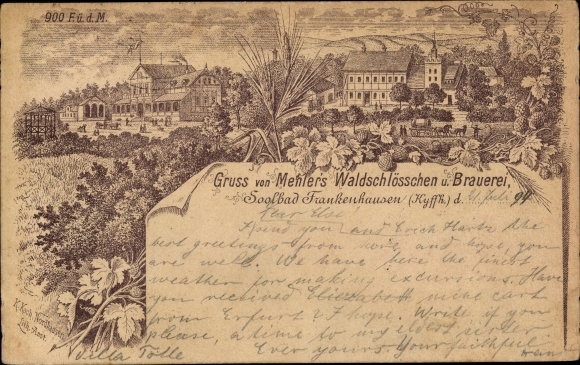 900 F. ü. d. M.
Gruss von Mehlers Waldschlösschen u. Brauerei,
Soolbad Frankenhausen (Kyffh.) d. Juli 94
I send you and Erich Hartz the
best greetings from here and hope, you
are well. We have here the finest
weather for making excursions. Have
you received Elizabeth
from Erfurt I hope. Write, if you
please, a time to my eldest sister
Ever yours. Your faithful
Villa Tölle
Lith. Anst.